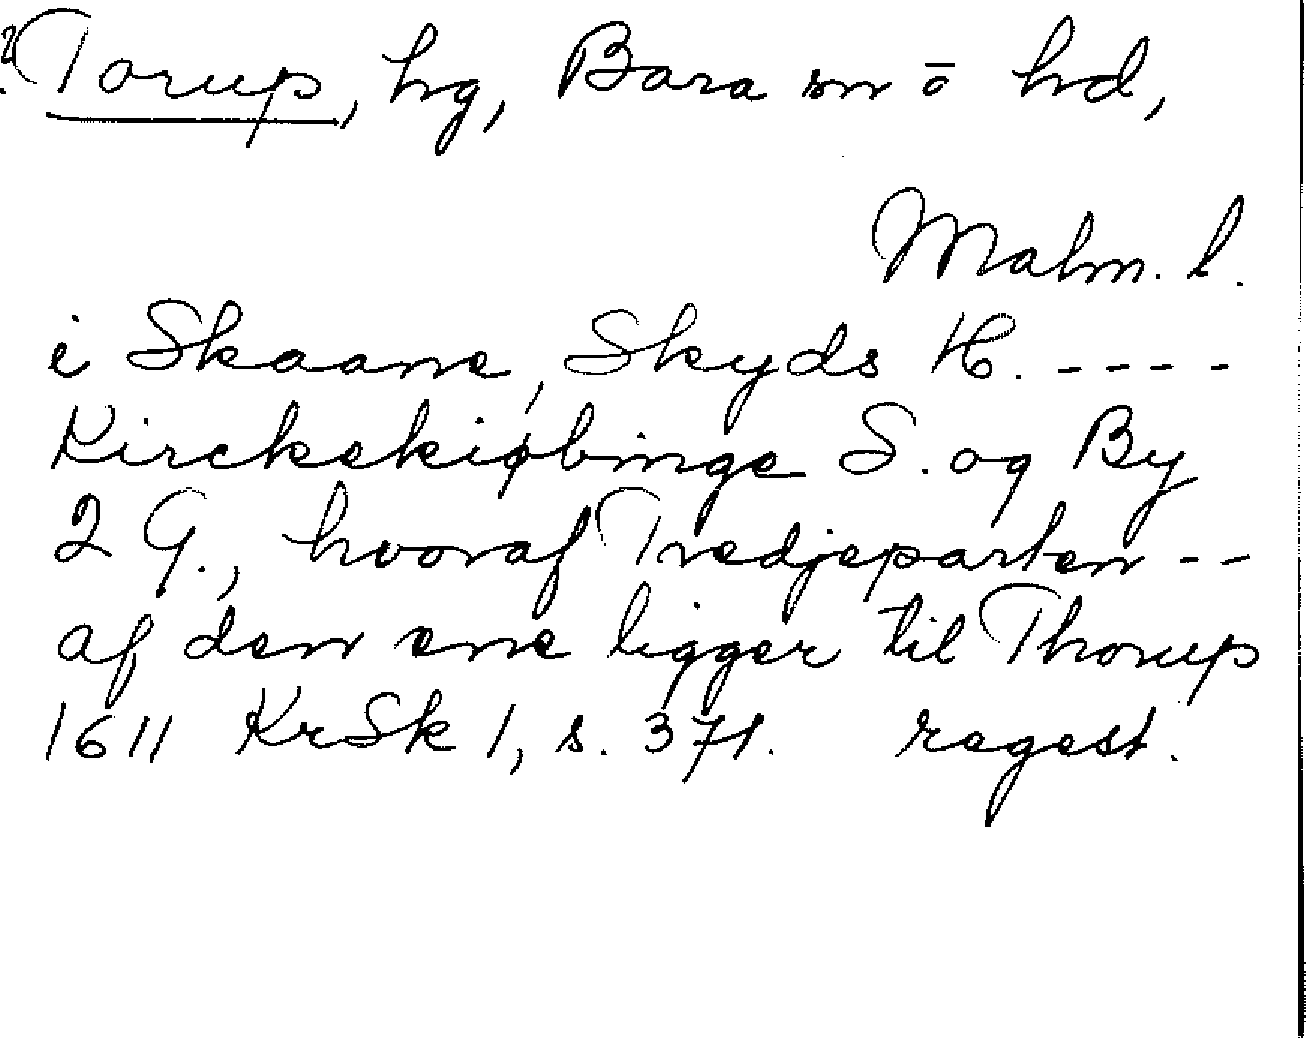 ? Torup, hg, Bara sn o hd,
Malm. l.
i Skaane, Skyds H. -----
Kirckekiøbinge S. og By
2 G., hvoraf Tredjeparten --
af den ene ligger til Thorup
1611 KrSk 1, s. 371. regest.